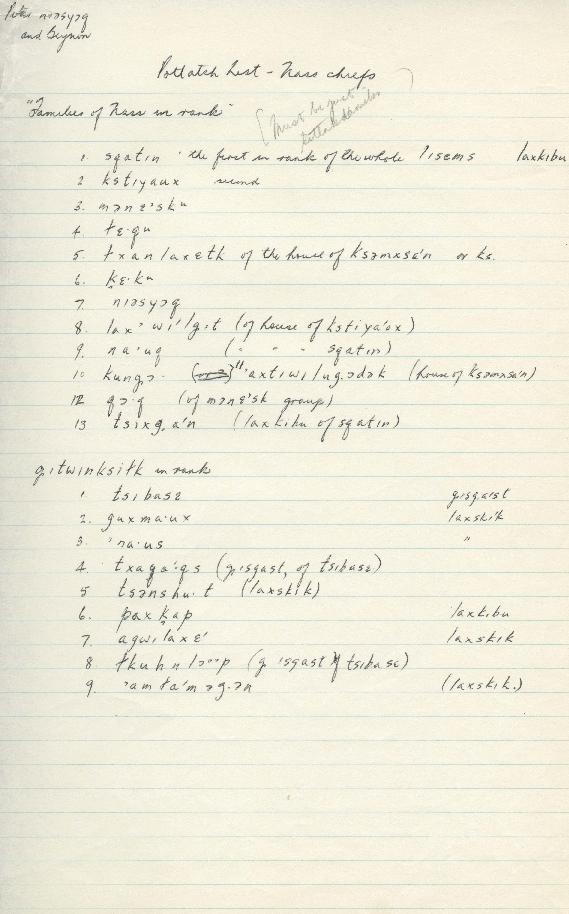 Peter niəsyɔq
and Beynon
Potlatch List - Nass chiefs
"Families of Nass in rank"
[Must be just
1. sqatin · the first in rank of the whole lisems laxkibu
2 kstiyaux second
3. mənɛ'skᵘ
4. tɛ·qu
5. txanlaxɛtk of the house of ksəmxsa'n or ks.
6. ḳɛ·kᵘ
7. niəsyɔq
8. lax'wi'lg·it (of house of kstiya'ox)
9. na·'uq ( " " " sqatin)
10 kungɔ· 11 'axtiwi'lugədək (house of ksəmxsa'n)
12 qɔ·q (of mənɛ'sk group)
13 tsixg,a'n (laxkibu of sqatin)
g,itwinksiłk in rank
1 tsibasɛ g,isgaist
2. guxma·ux laxskik
3. 'na·us "
4. txaga·'gs (g,isgast, of tsibasɛ)
5 tsənshu·t (laxskik)
6. paxḳap laxkibu
7. agwilaxɛ' laxskik
8 łkuhnlɔ·'p (g,isgast of tsibasɛ)
9. 'amła'məg,ən (laxskik.)